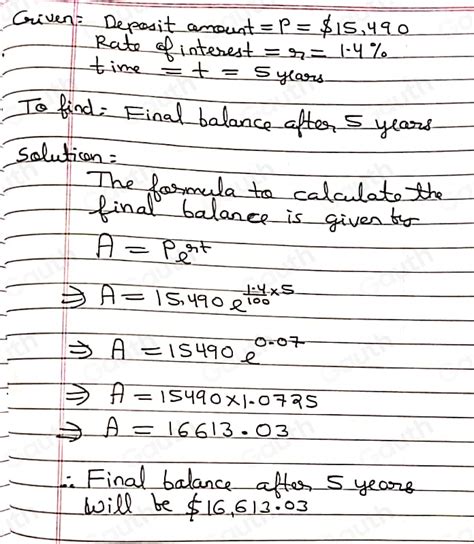 Given: Deposit amount = P = $15,490
Rate of interest = r = 1.4%
time = t = 5 years
To find: Final balance after 5 years
Solution =
The formula to calculate the
final balance is given by
A = Pe^rt
⇒ A = 15,490 e^(1.4/100 × 5)
⇒ A = 15490 e^0.07
⇒ A = 15490 × 1.0725
⇒ A = 16613.03
∴ Final balance after 5 years
will be $16,613.03